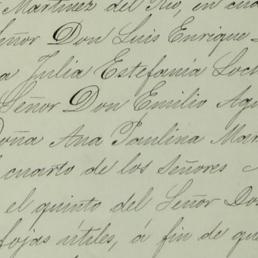 Martínez del Río, en cua
eñor Don Luis Enrique
a Julia Estefanía Loch
Señor Don Emilio Agu
Doña Ana Paulina Mar
cuarto de los Señores
el quinto del Señor Don
fojas útiles, á fin de que